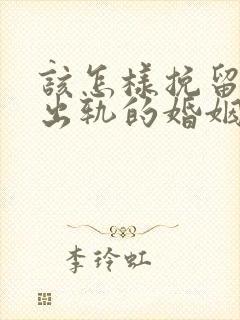 該怎樣挽留
出軌的婚姻
李玲虹